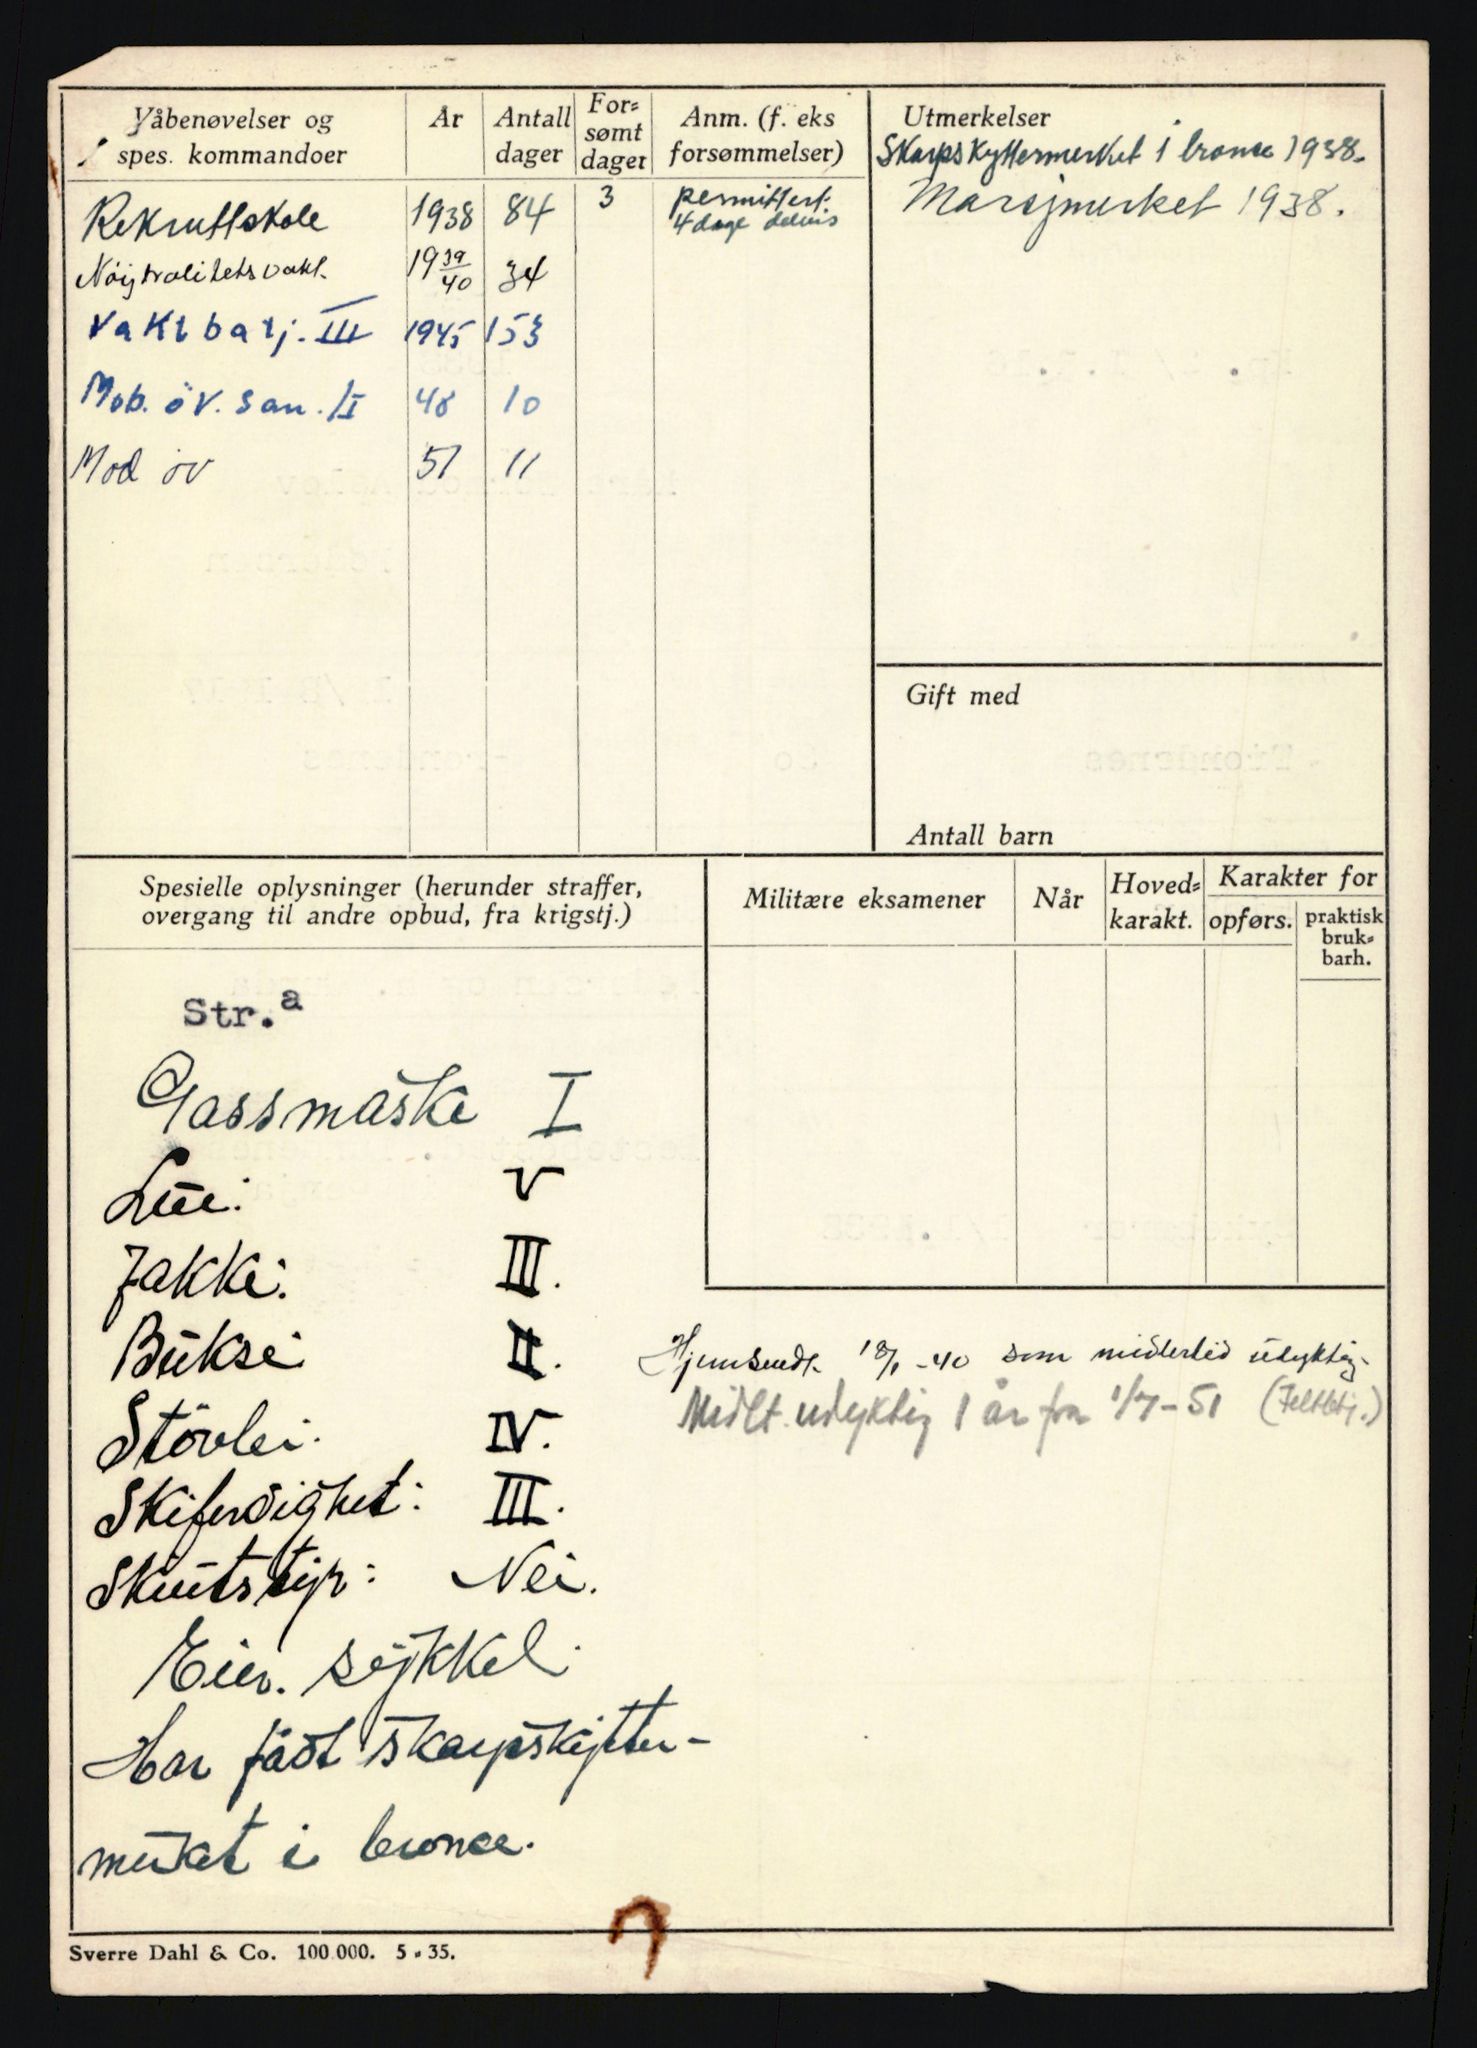 Våbenøvelser og
spes. kommandoer
År
Antall
dager
For-
sømt
dager
Anm. (f. eks
forsømmelser)
Rekruttskole 1938 84 3 permittert.
4 dage delvis
Nøijtralitetsvakt. 19 39/40 34
Vaktbatj. III 1945 153
Mob. öv. san. /I 48 10
Mod öv 51 11
Utmerkelser
Skarpskyttermerket i bronse 1938.
Marsjmerket 1938.
Gift med
Antall barn
Spesielle oplysninger (herunder straffer,
overgang til andre opbud, fra krigstj.)
Militære eksamener
Når
Hoved-
karakt.
Karakter for
opførs.
praktisk
bruk-
barh.
Str. a
Gassmaske I
Lue: V
Jakke: III.
Bukse: II.
Støvle: IV.
Skiferdighet: III.
Skiutstyr: Nei.
Eier. sykkel.
Har fådt skarpskytter-
merket i bronce.
Hjemsendt -40 som midlertid udyktig.
Midlt. udyktig 1 år fra 1/7-51 (Feltbtj.)
Sverre Dahl & Co. 100.000. 5 - 35.